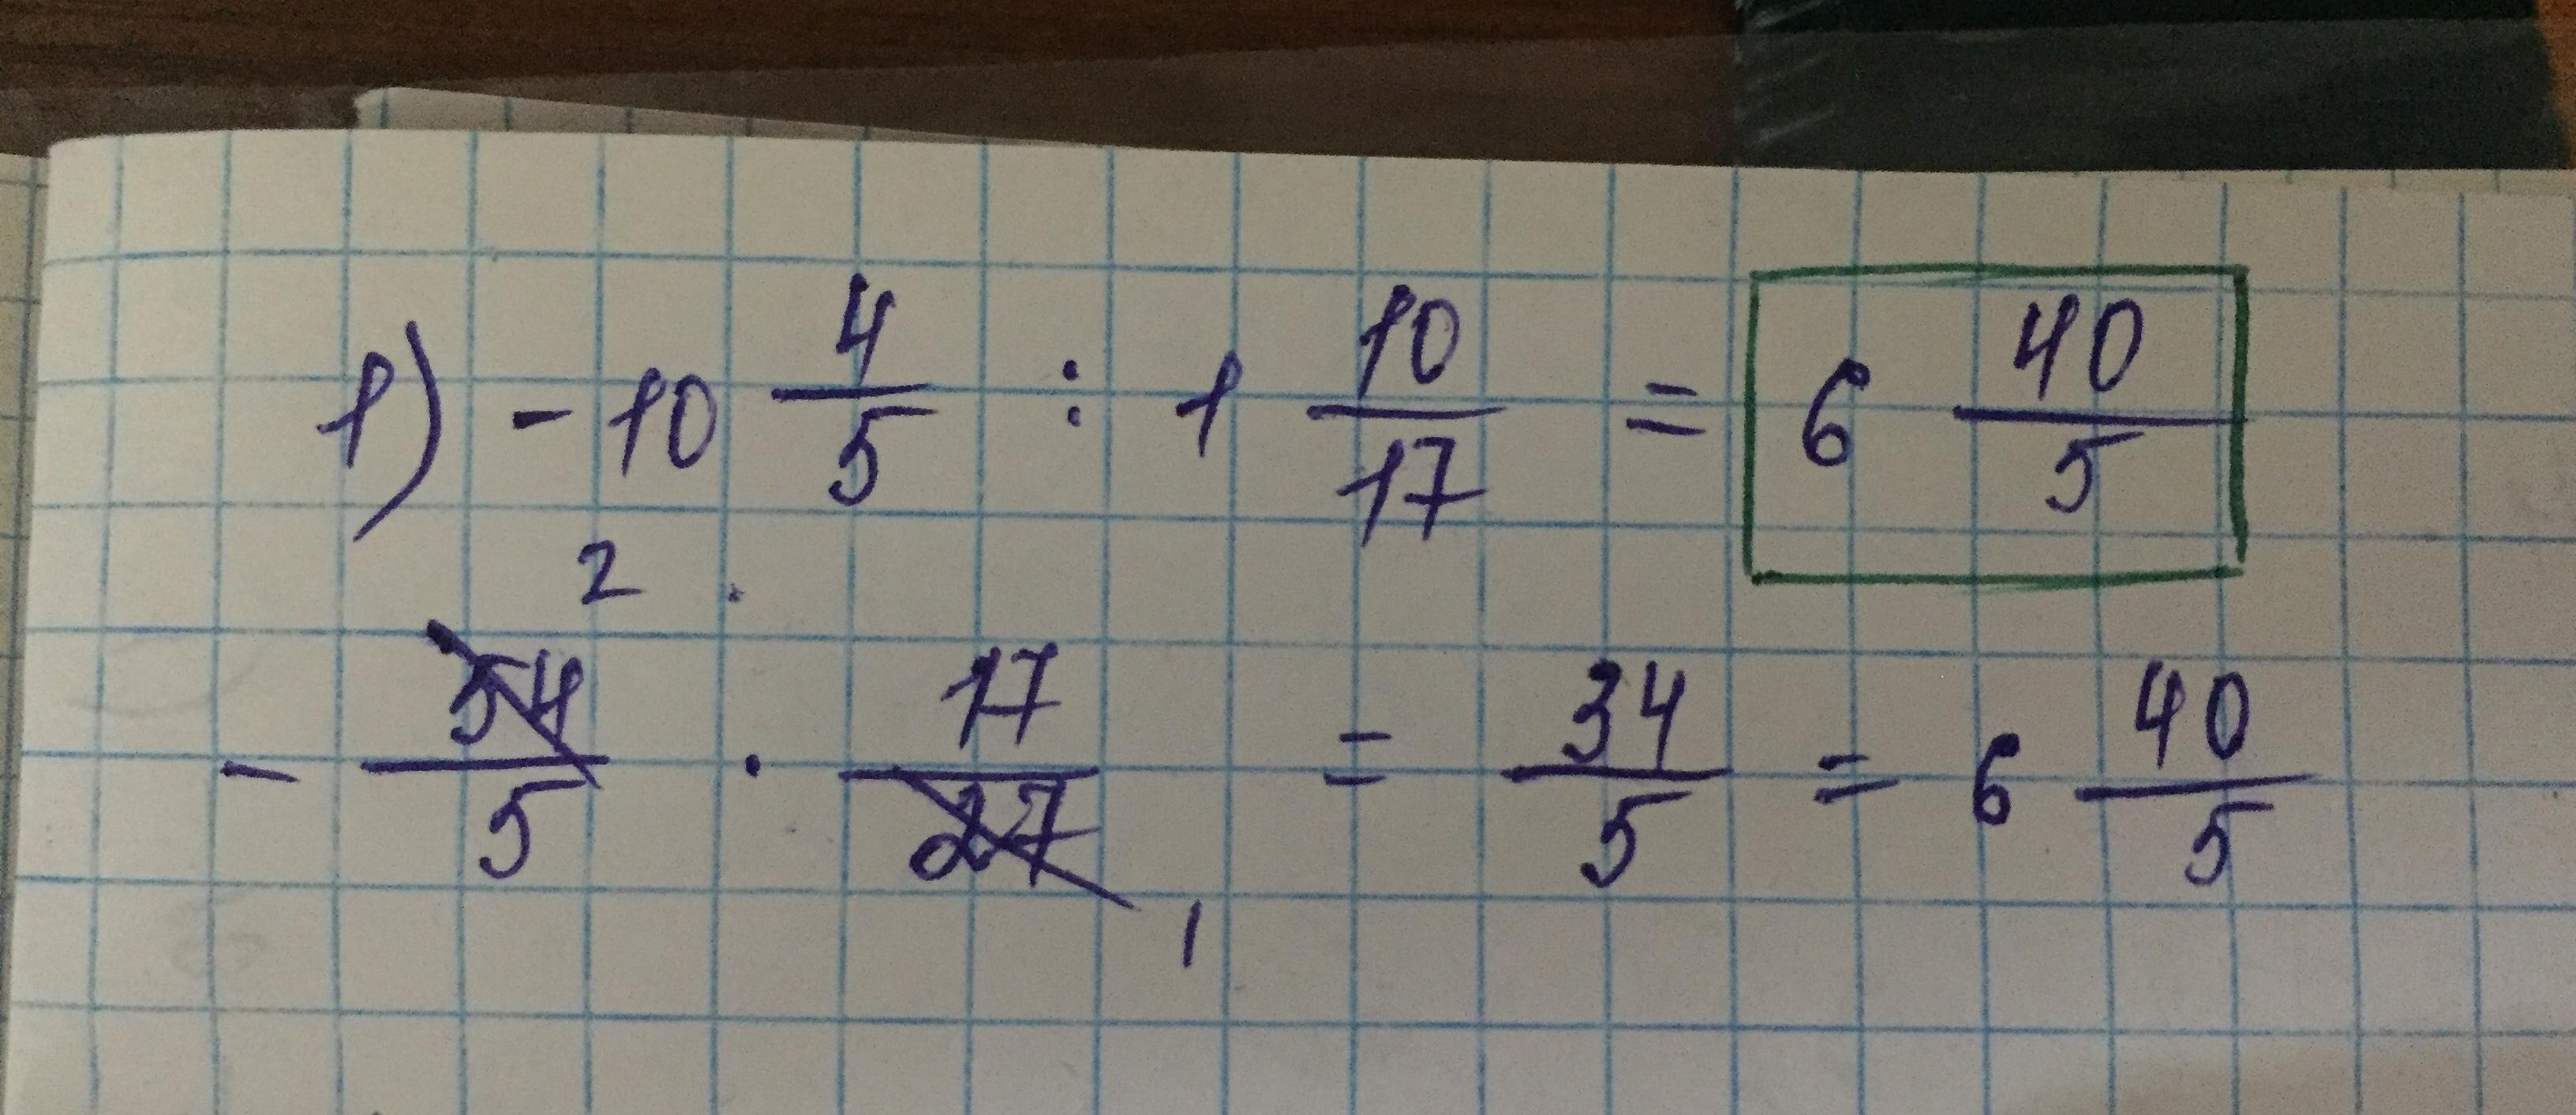 1) - 10 4/5 : 1 10/17 = 6 40/5
- 54/5 2 · 17/27 1 = 34/5 = 6 40/5